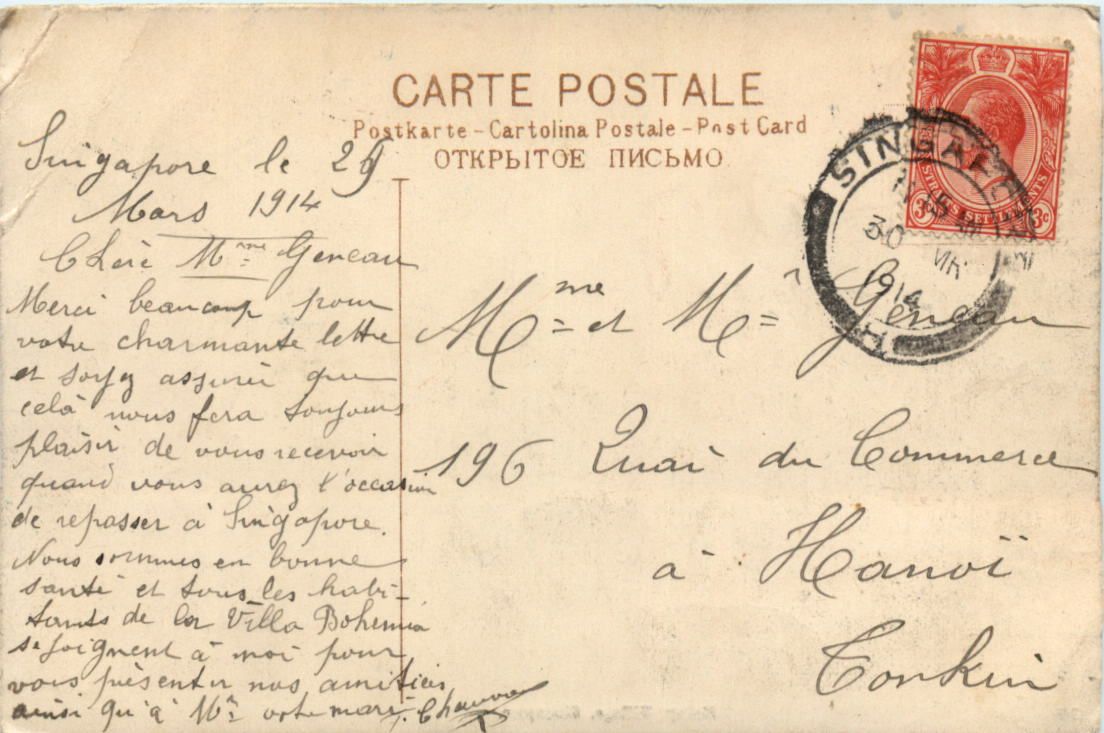 CARTE POSTALE
Postkarte - Cartolina Postale - Post Card
ОТКРЫТОЕ ПИСЬМО
Singapore le 29
Mars 1914
Chère Mme Geneau
Merci beaucoup pour
votre charmante lettre
et soyez assurée que
celà nous fera toujours
plaisir de vous recevoir
quand vous aurez l'occasion
de repasser à Singapore.
Nous sommes en bonne
santé et tous les habi-
tants de la Villa Bohemia
se joignent à moi pour
vous présenter nos amitiés
ainsi qu'à Mr votre mari.
Mme et Mr Geneau
196 Quai du Commerce
à Hanoï
Tonkin
STRAITS SETTLEMENTS
3c 3c
SINGAPORE
30 MR
1914
H